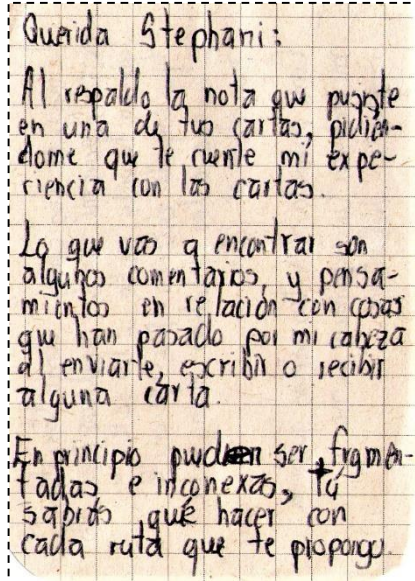 Querida Stephani:
Al respaldo la nota que pusiste
en una de tus cartas, pidién-
dome que te cuente mi expe-
riencia con las cartas.
Lo que vas a encontrar son
algunos comentarios, y pensa-
mientos en relación con cosas
que han pasado por mi cabeza
al enviarte, escribir o recibir
alguna carta.
En principio pueden ser frgmen-
tadas e inconexas, tú
sabrás qué hacer con
cada ruta que te propongo.